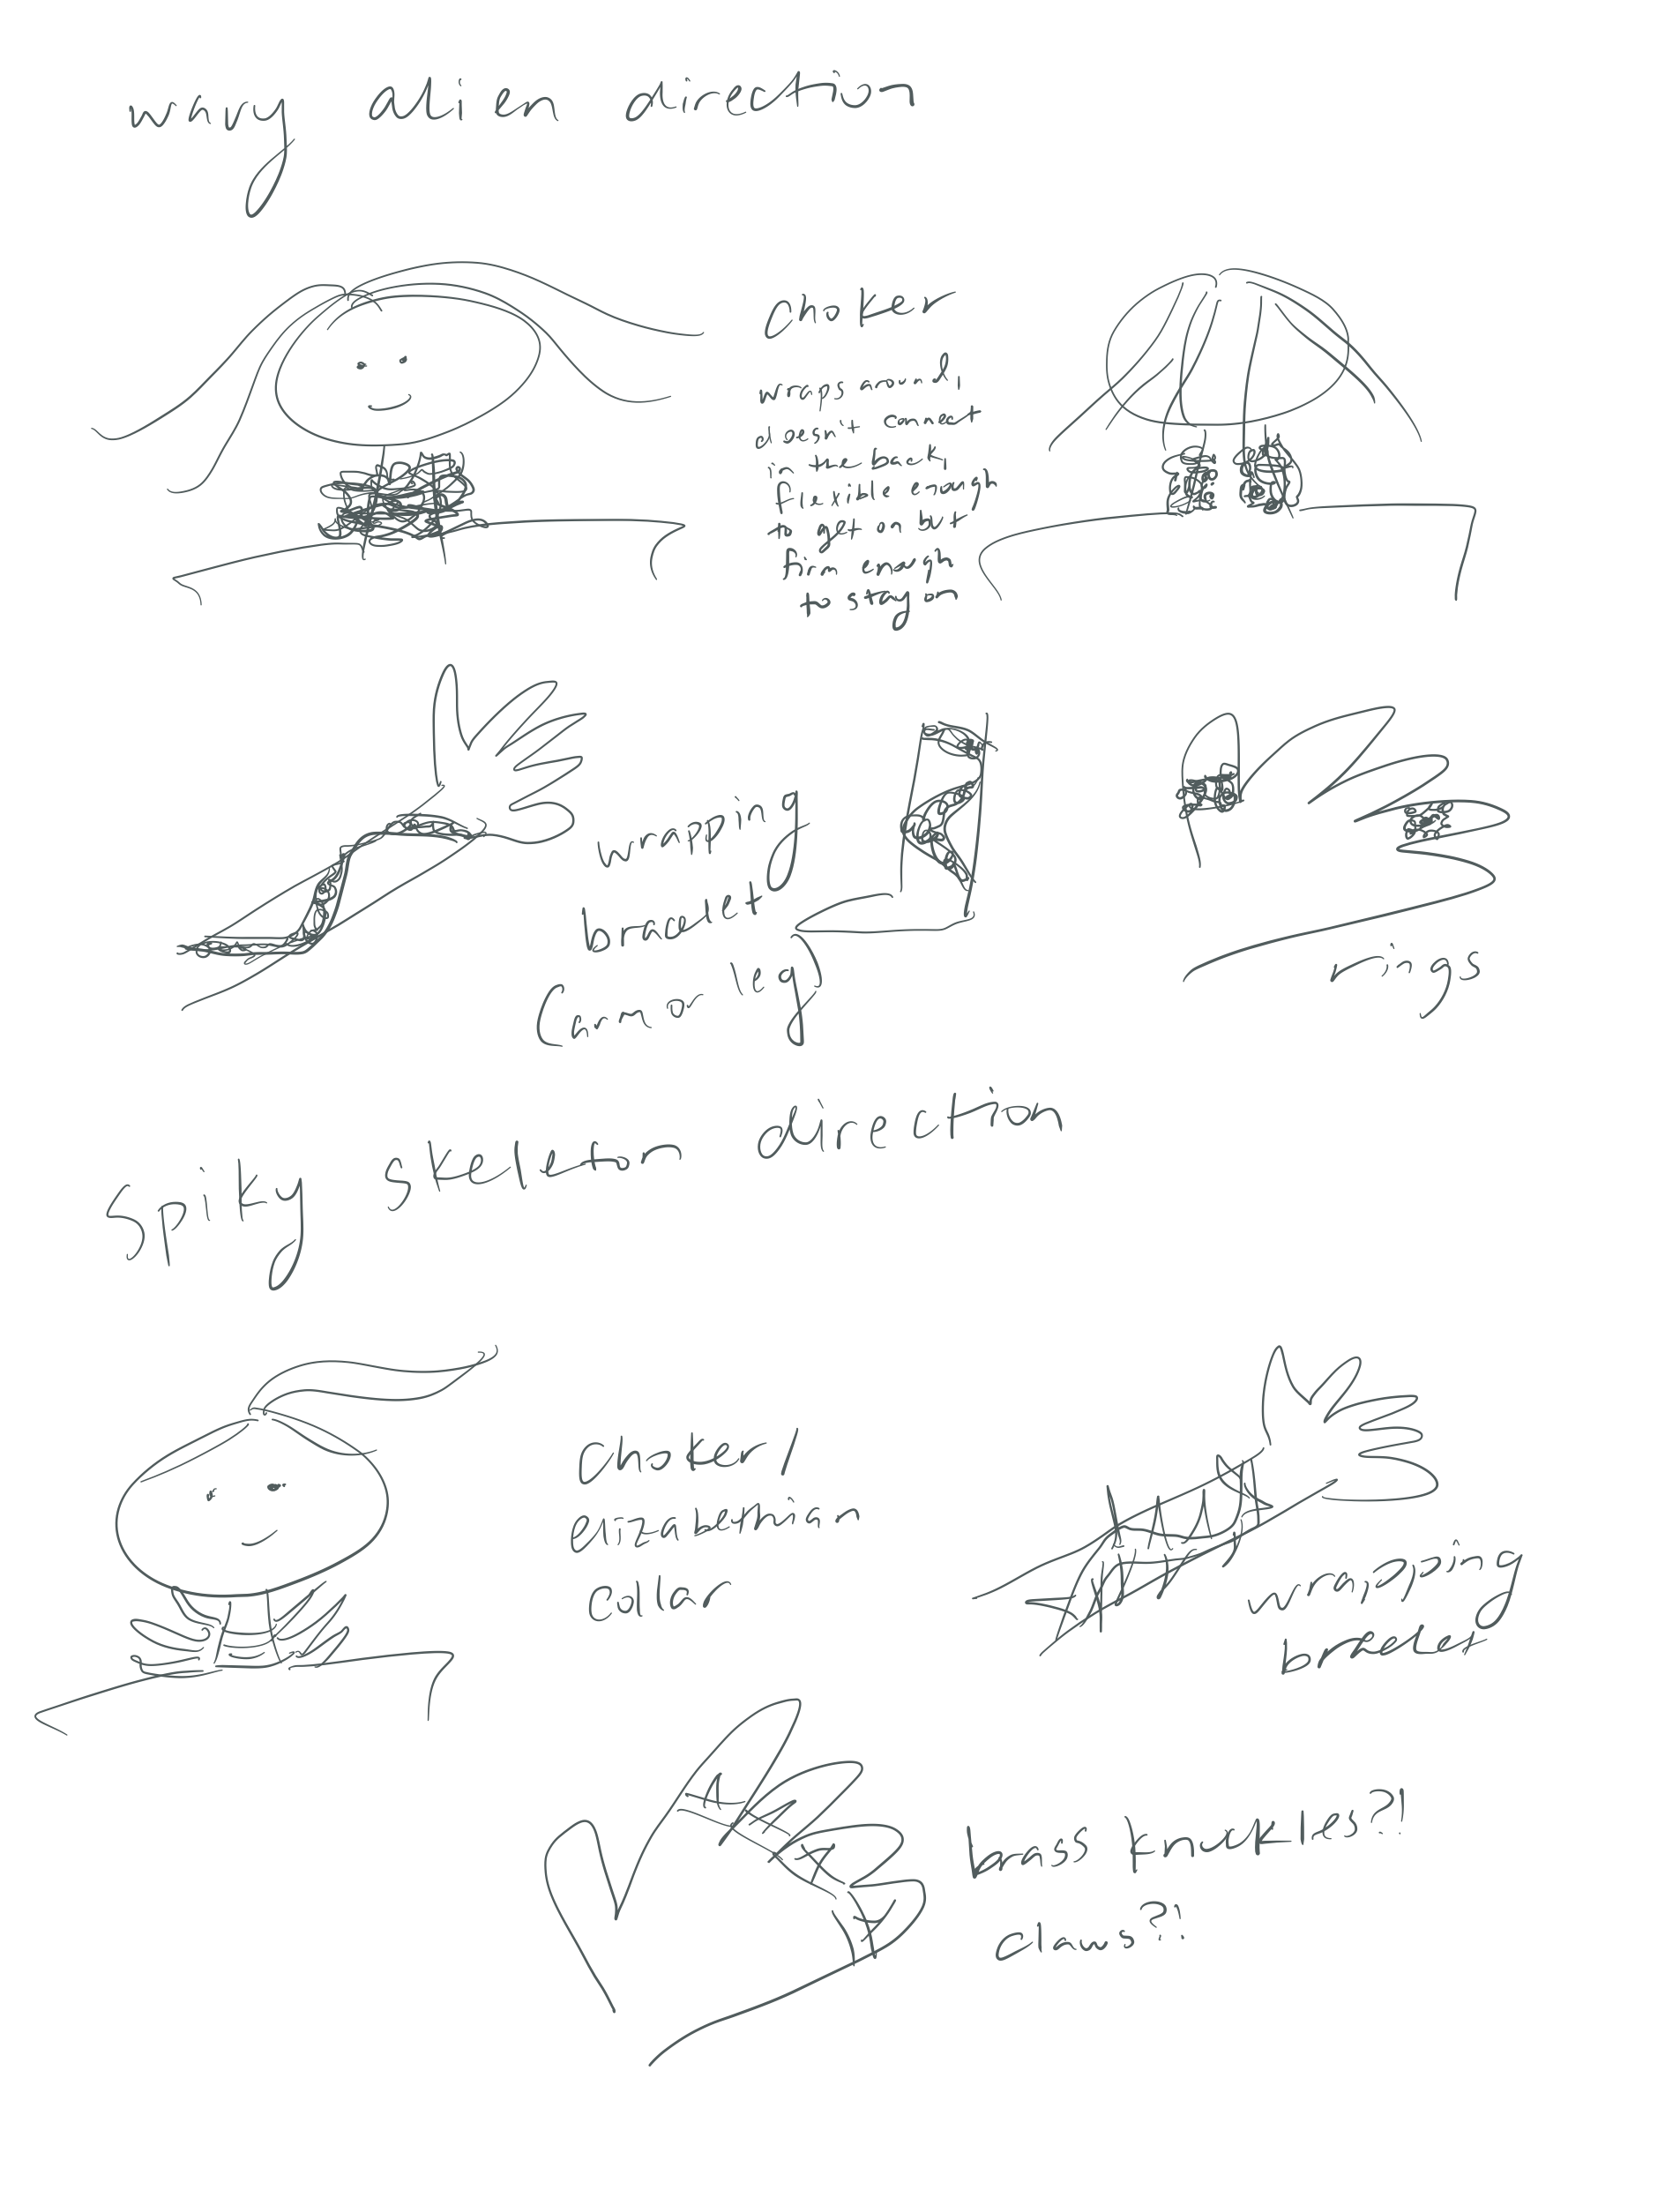 wavy alien direction
choker
wraps around,
doesn't connect
in the back,
flexible enough
to get on but
firm enough
to stay on
wrapping
bracelet
(arm or leg)
rings
Spiky skeleton direction
choker/
elizabethian
collar
wrapping
bracelet
brass knuckles?!
claws?!